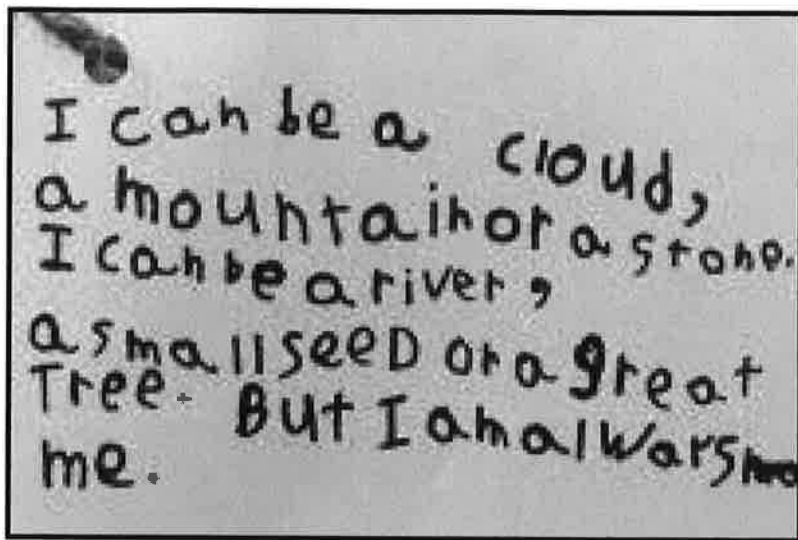 I can be a cloud,
a mountain or a stone.
I can be a river,
a small seeD or a great
Tree. But I am alwars
me.